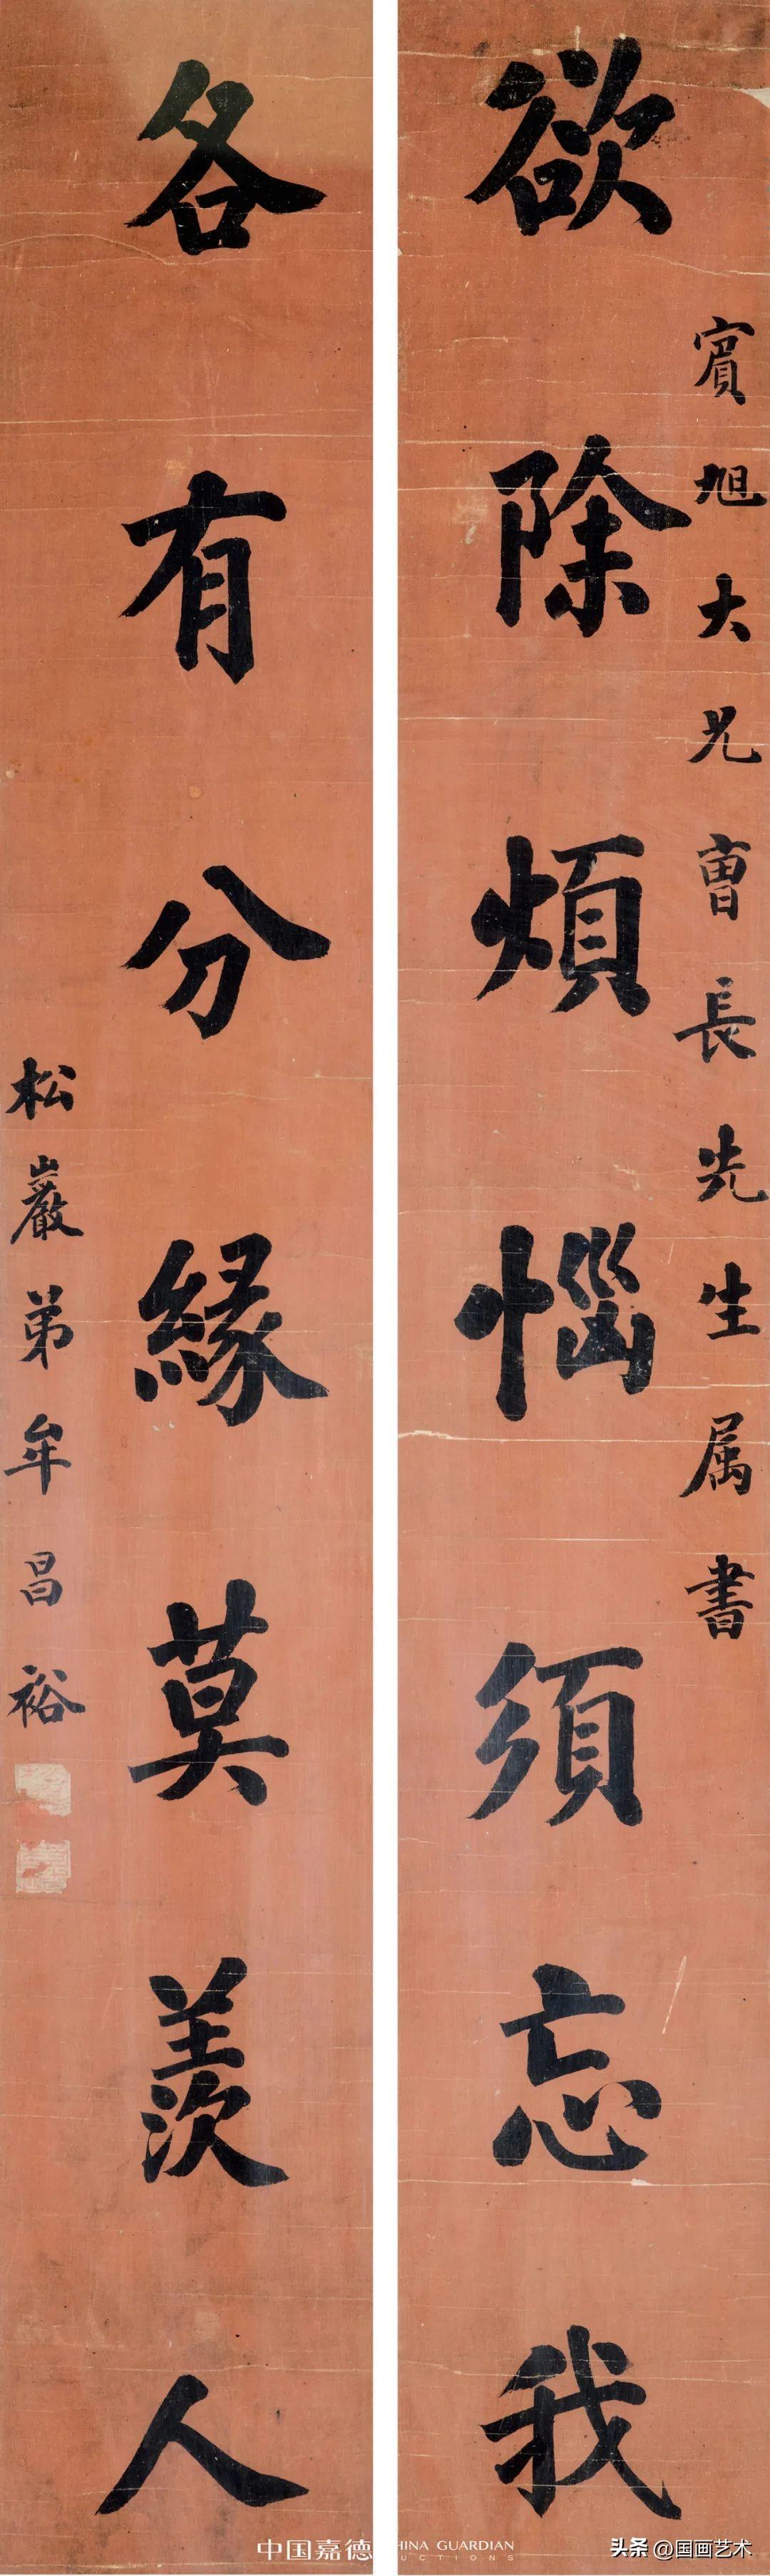 賓旭大兄曹長先生属書
欲除煩惱須忘我
各有分緣莫羨人
松巖弟牟昌裕
中国嘉德
HINA GUARDIAN
UCTIONS
头条 @国画艺术